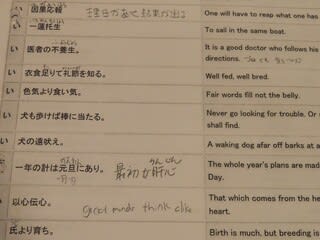 い 因果応報 理由があって結果が出る One will have to reap what one has
い 一蓮托生 To sail in the same boat.
い 医者の不養生。 It is a good doctor who follows his
directions.
い 衣食足りて礼節を知る。 Well fed, well bred.
い 色気より食い気。 Fair words fill not the belly.
い 犬も歩けば棒に当たる。 Never go looking for trouble. Or
shall find.
い 犬の遠吠え。 A waking dog afar off barks at a
い 一年の計は元旦にあり。 最初が肝心 かんじん The whole year's plans are made
Day.
い 以心伝心。 great minds think alike That which comes from the he
heart.
い 氏より育ち。 Birth is much, but breeding is